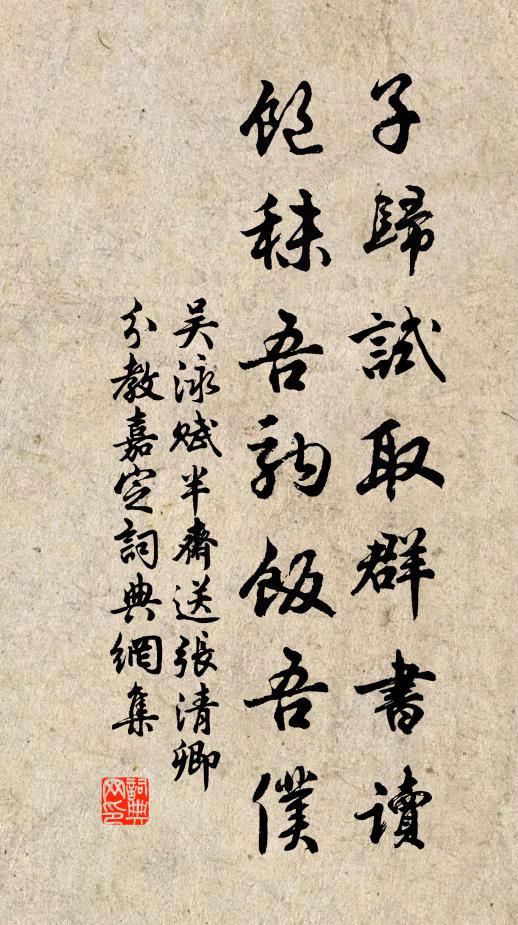 子歸試取群書讀
飽秣吾駒飯吾僕
吴泳賦半齋送張清卿
分教嘉定詞典網集
詞典网印